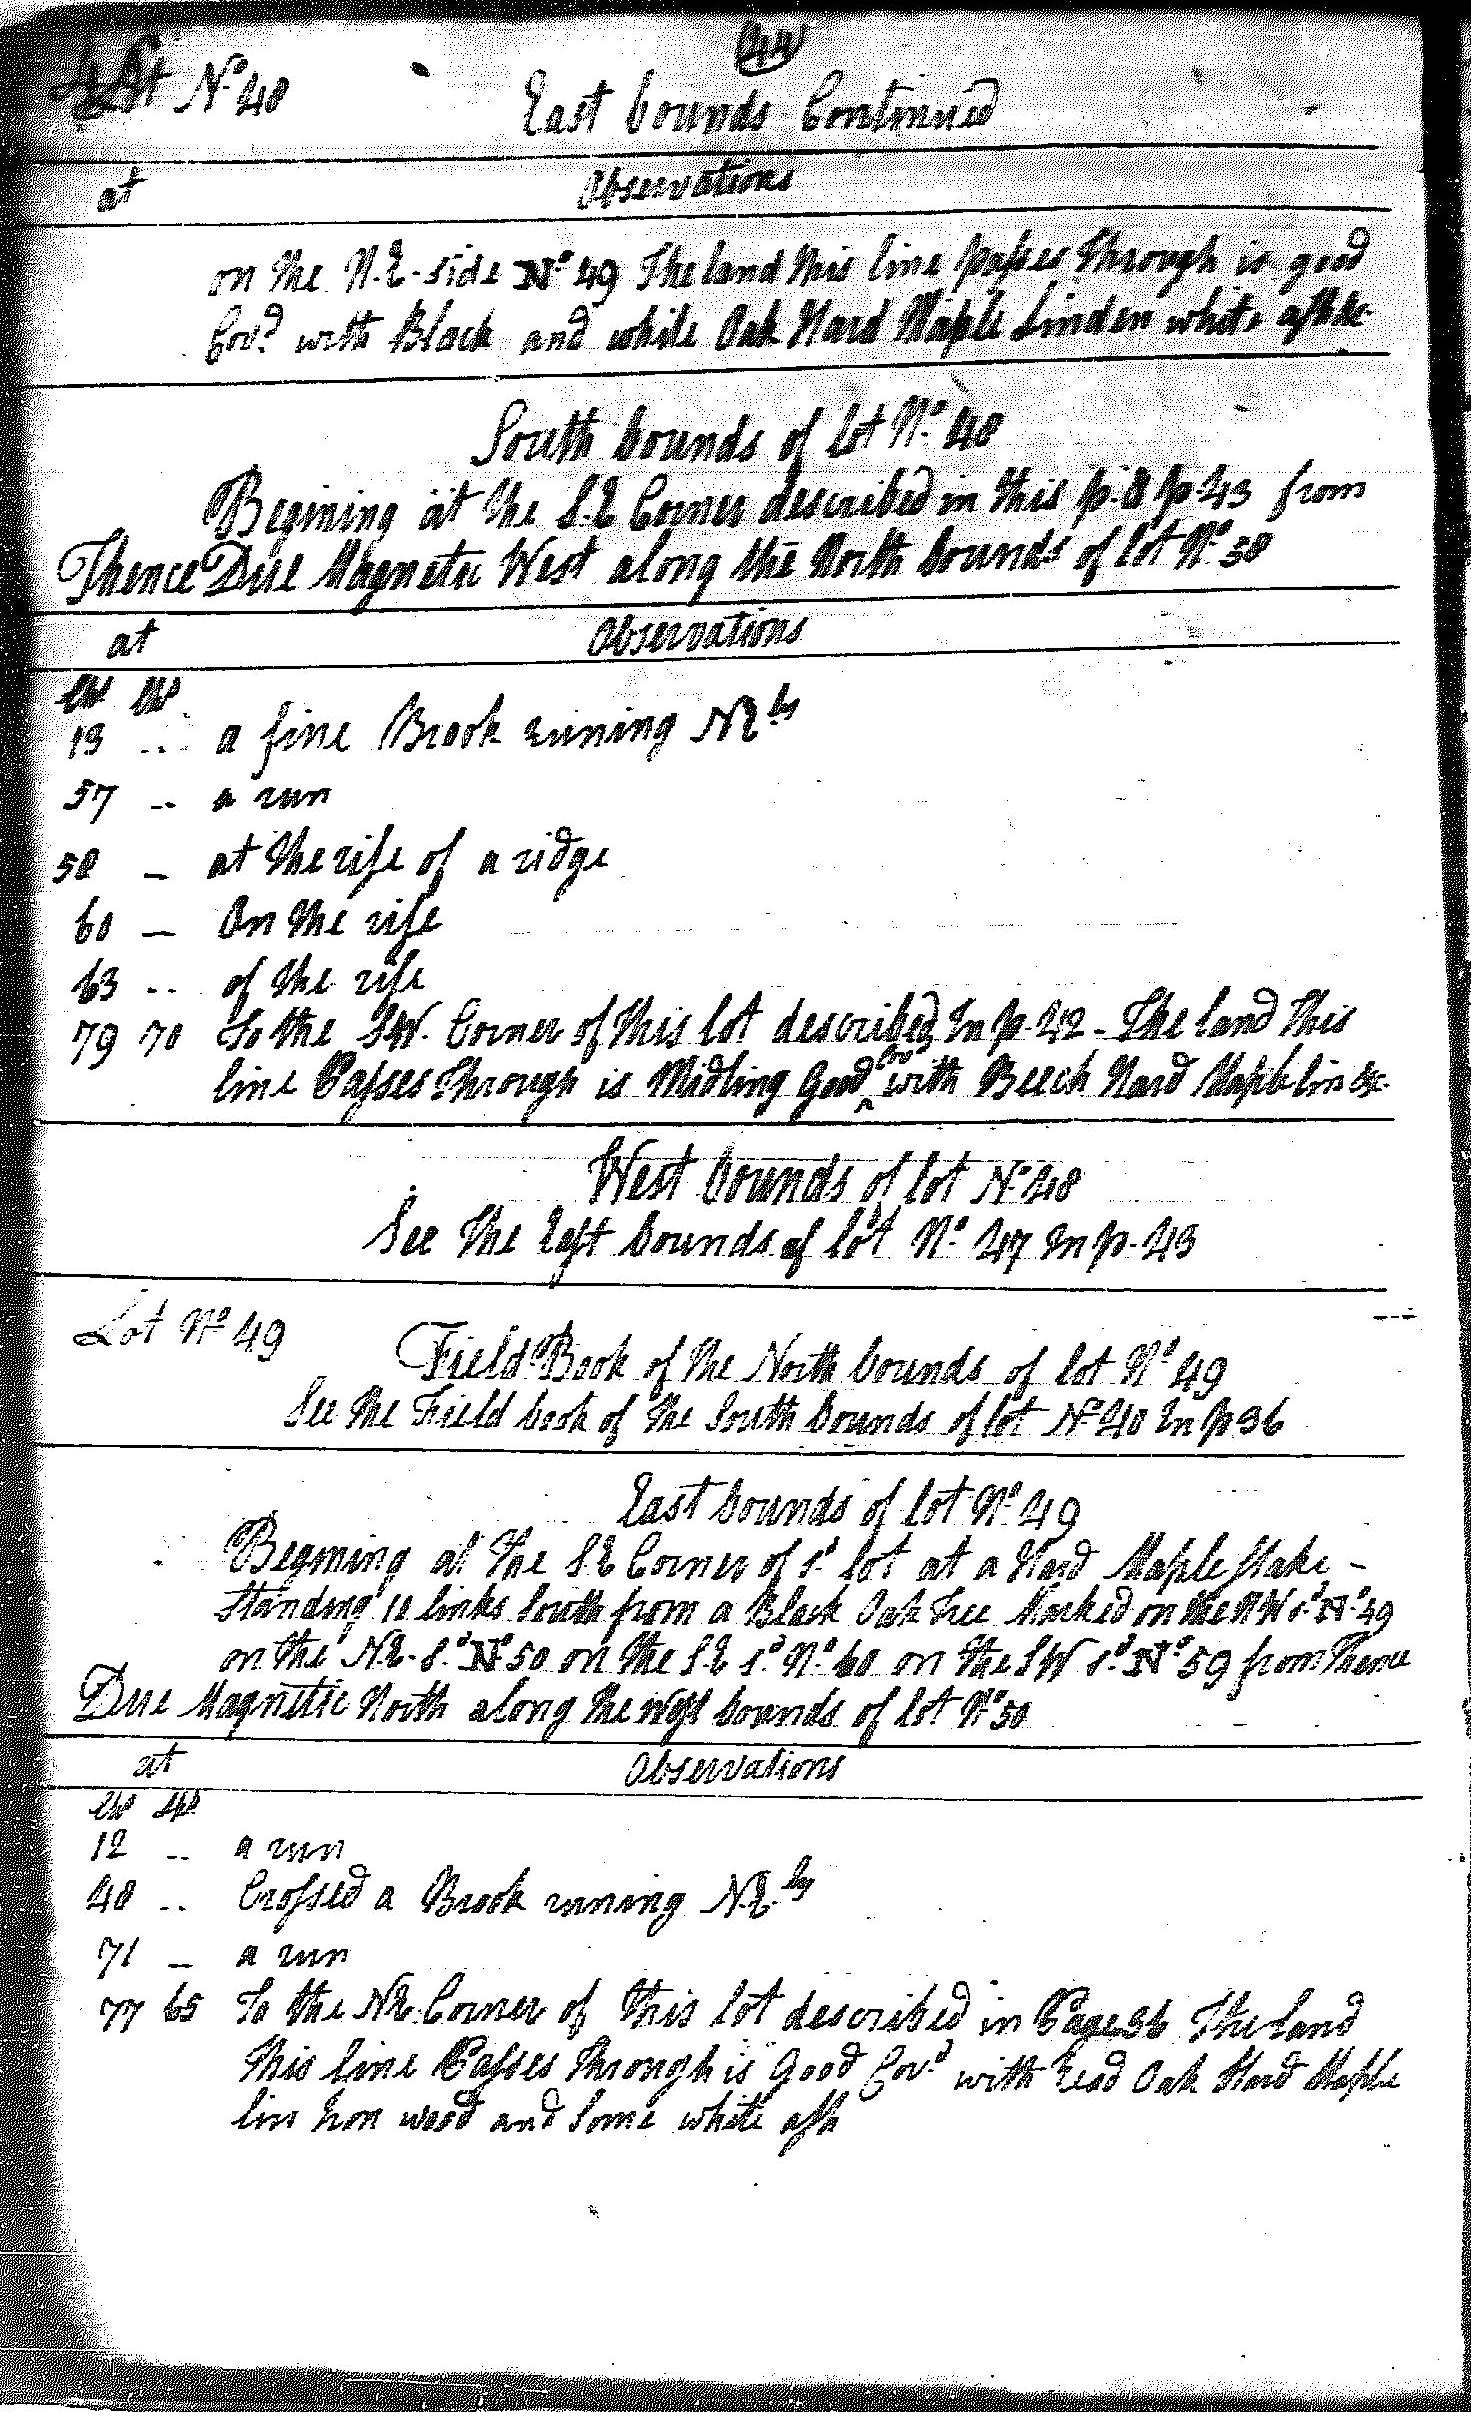 44
Lot No 48
East bounds Continued
at Observations
on the N.E. side No 49 The land this line passes Through is good
Covd with Black and white Oak Hard Maple Linden white ash &c
South bounds of lot No 48
Begining at the S.E Corner described in this p. & p. 43 from
Thence Due Magnetic West along the North bounds of lot No 58
at Observations
Chs Lks
13 .. a fine Brook runing NEly
57 .. a run
58 — at the rise of a ridge
60 — On the rise
63 .. of the rise
79 70 To the SW. Corner of this lot described In p. 42 - The land This
line Passes Through is Midling Good Covd with Beech Hard Maple lin &c.
West bounds of lot No 48
See The East bounds of lot No 47 In p. 43
Lot No 49
Field Book of the North bounds of lot No 49
See the Field book of the South bounds of lot No 40 In p 36
East bounds of lot No 49
Begining at The S.E Corner of sd lot at a Hard Maple Stake -
Standing 10 links South from a Black Oak Tree Marked on the NW sd No 49
on the N.E. sd No 50 on the S E sd No 60 on the SW sd No 59 from Thence
Due Magnetic North along the West bounds of lot No 50
at Observations
Chs Lks
12 .. a run
48 .. Crossed a Brook runing N.E.ly
71 — a run
77 65 To the NE. Corner of This lot described in Page 36 The land
This line Passes Through is Good Covd with Read Oak Hard Maple
lin Iron wood and Some white ash